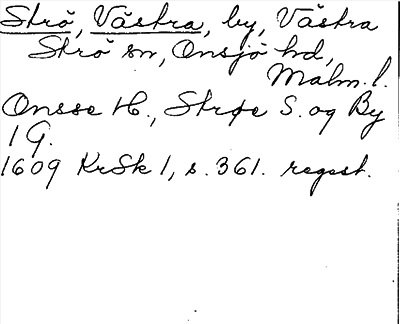 Strö, Västra, by, Västra
Strö sn, Onsjö hd,
Malm. l.
Onsse H., Strøe S. og By
1 G.
1609 KrSk 1, s. 361. regest.